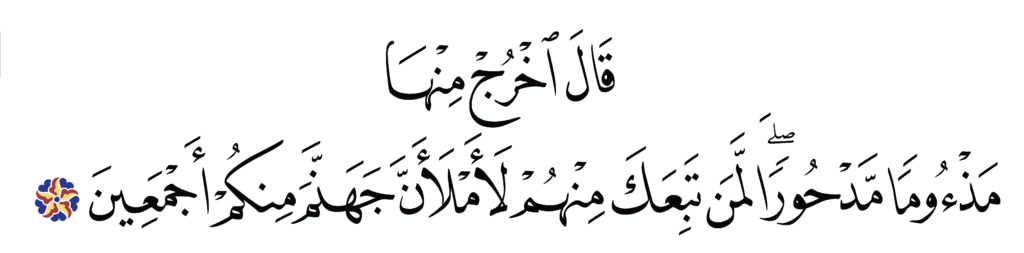 قَالَ ٱخْرُجْ مِنْهَا
مَذْءُومًا مَّدْحُورًا ۖ لَّمَن تَبِعَكَ مِنْهُمْ لَأَمْلَأَنَّ جَهَنَّمَ مِنكُمْ أَجْمَعِينَ